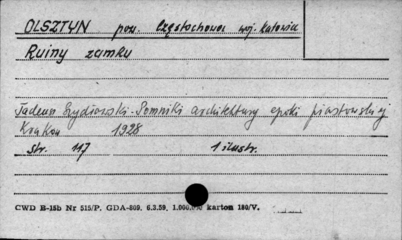 OLSZTYN pow. Częstochowa woj. Katowice
Ruiny zamku
Tadeusz Szydłowski - Pomniki architektury epoki piastowskiej
Kraków 1928
str. 117 1 ilustr.
CWD B-15b Nr 515/P. GDA-809. 6.3.59. 1.000.000 karton 180/V.